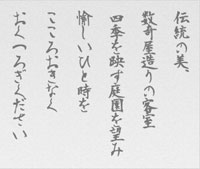 伝統の美、
数奇屋造りの客室
四季を映す庭園を望み
愉しいひと時を
こころおきなく
おくつろぎください